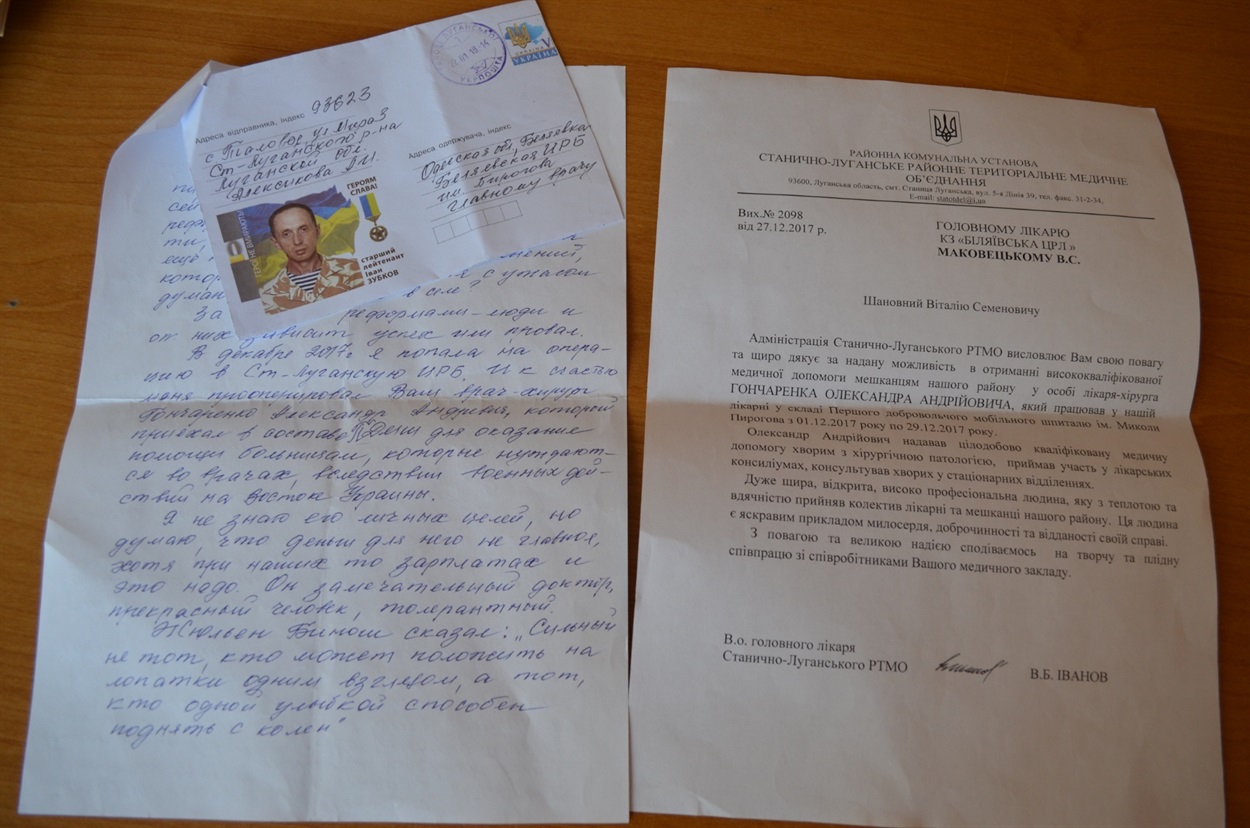 93623
Адреса відправника, індекс
с Таловое ул Мира 3
Ст-Луганского р-на
Луганской обл.
УКРПОШТА
УКРАЇНА
V
Адреса одержувача, індекс
Одесская обл, Беляевка
Беляевская ЦРБ
им. Пирогова
главному врачу
ГЕРОЯМ
СЛАВА!
старший
лейтенант
Іван
ЗУБКОВ
ти,
ещё
с ужасом
дума
в сем?
За реформами-люди и
от них зависит успех или провал.
В декабре 2017г я попала на опера-
цию в Ст-Луганскую ЦРБ. И к счастью
меня прооперировал Ваш врач-хирург
Гончаренко Александр Андреевич, который
приехал в составе для оказание
помощи больницам, которые нуждают-
ся во врачах, вследствии военных дей-
ствий на Востоке Украины.
Я не знаю его личных целей, но
думаю, что деньги для него не главное,
хотя при наших то зарплатах и
это надо. Он замечательный доктор,
прекрасный человек, толерантный.
Жюльен Бинош сказал: „Сильный
не тот, кто может положить на
лопатки одним взглядом, а тот,
кто одной улыбкой способен
поднять с колен"
РАЙОННА КОМУНАЛЬНА УСТАНОВА
СТАНИЧНО-ЛУГАНСЬКЕ РАЙОННЕ ТЕРИТОРІАЛЬНЕ МЕДИЧНЕ
ОБ'ЄДНАННЯ
93600, Луганська область, смт. Станиця Луганська, вул. 5-я Лінія 39, тел. факс. 31-2-34,
E-mail: statotdel@i.ua
Вих.№ 2098
від 27.12.2017 р.
ГОЛОВНОМУ ЛІКАРЮ
КЗ «БІЛЯЇВСЬКА ЦРЛ »
МАКОВЕЦЬКОМУ В.С.
Шановний Віталію Семеновичу
Адміністрація Станично-Луганського РТМО висловлює Вам свою повагу
та щиро дякує за надану можливість в отриманні висококваліфікованої
медичної допомоги мешканцям нашого району у особі лікаря-хірурга
ГОНЧАРЕНКА ОЛЕКСАНДРА АНДРІЙОВИЧА, який працював у нашій
лікарні у складі Першого добровольчого мобільного шпиталю ім. Миколи
Пирогова з 01.12.2017 року по 29.12.2017 року.
Олександр Андрійович надавав цілодобово кваліфіковану медичну
допомогу хворим з хірургічною патологією, приймав участь у лікарських
консиліумах, консультував хворих у стаціонарних відділеннях.
Дуже щира, відкрита, високо професіональна людина, яку з теплотою та
вдячністю прийняв колектив лікарні та мешканці нашого району. Ця людина
є яскравим прикладом милосердя, доброчинності та відданості своїй справі.
З повагою та великою надією сподіваємось на творчу та плідну
співпрацю зі співробітниками Вашого медичного закладу.
В.о. головного лікаря
Станично-Луганського РТМО В.Б. ІВАНОВ